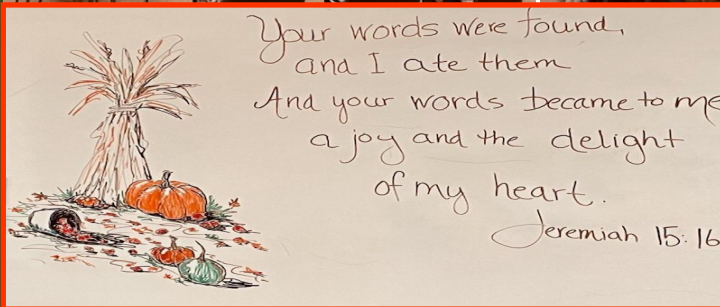 Your words were found,
and I ate them
And your words became to me
a joy and the delight
of my heart.
Jeremiah 15:16